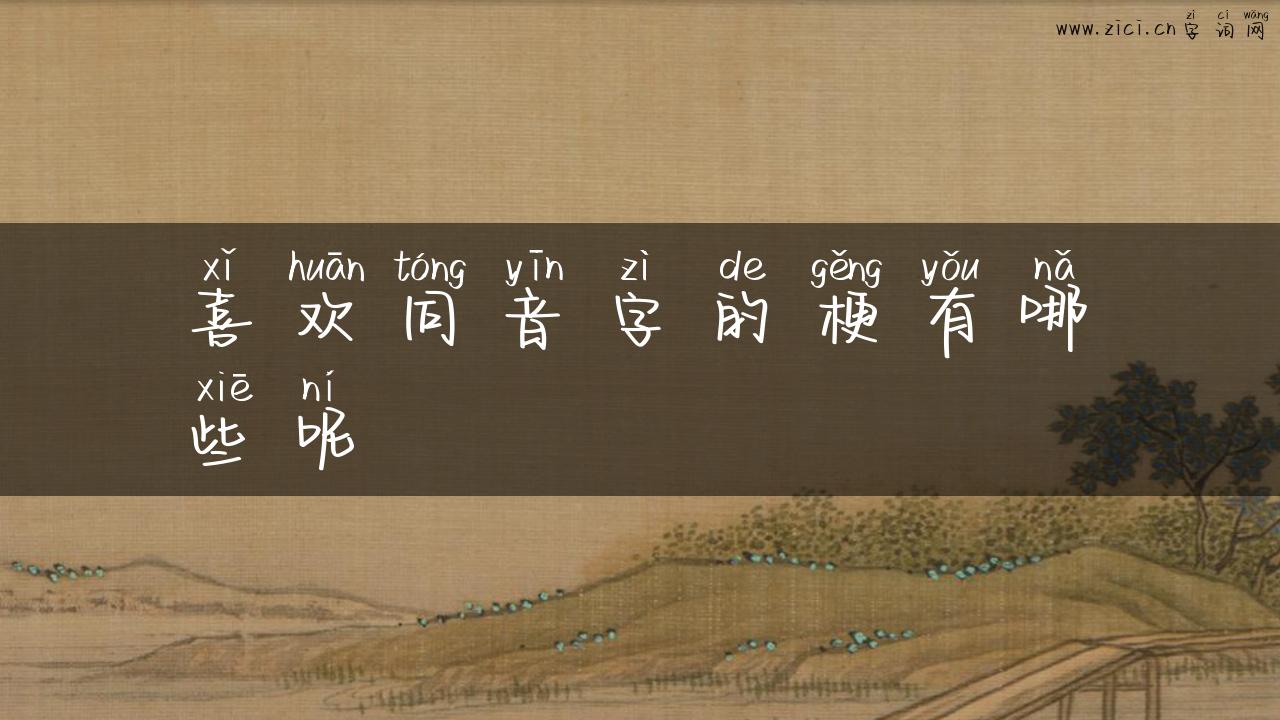 zì cí wǎng
www.zici.cn 字词网
xǐ huān tóng yīn zì de gěng yǒu nǎ
喜欢同音字的梗有哪
xiē ní
些呢